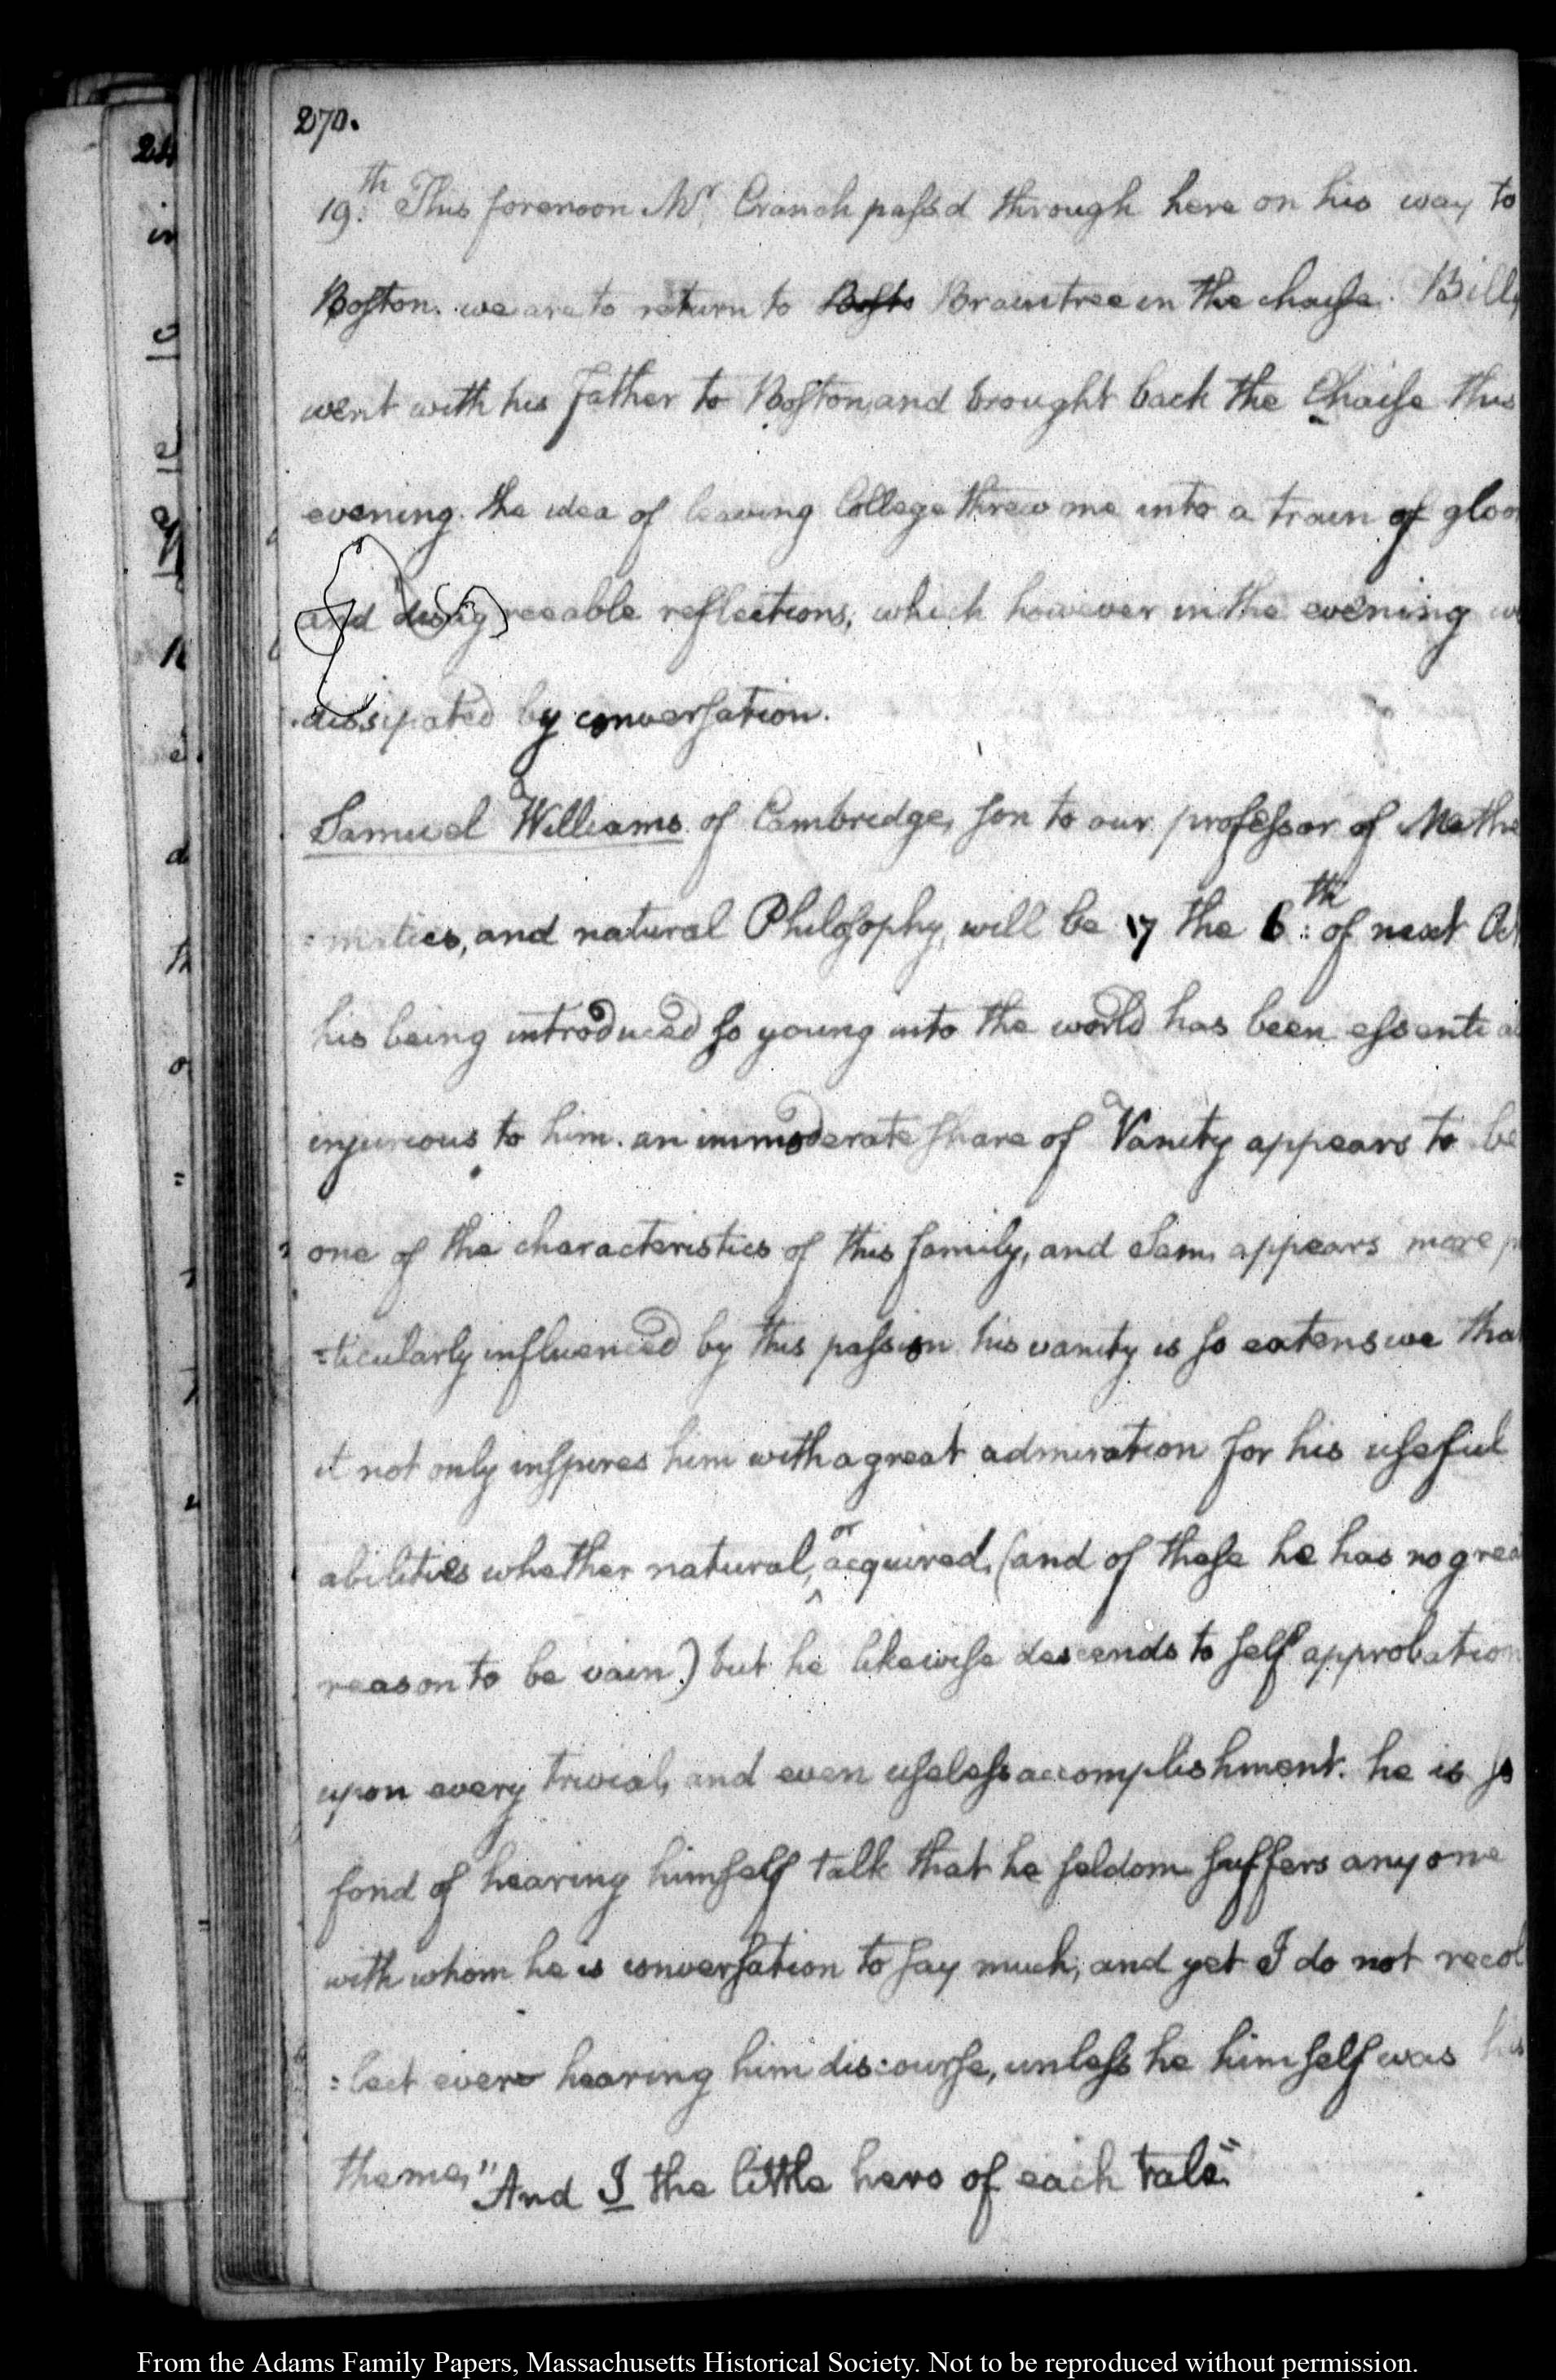 270.
19th. This forenoon Mr. Cranch pass'd through here on his way to
Boston. we are to return to Bosto Braintree in the chaise. Billy
went with his father to Boston, and brought back the Chaise this
evening. the idea of leaving College threw me into a train of gloo
and disagreeable reflections, which however in the evening we
dissipated by conversation.
Samuel Williams of Cambridge, son to our professor of Mathe
=matics, and natural Philosophy, will be 17 the 6th: of next Oct
his being introduced so young into the world has been essential
injurious to him. an immoderate share of Vanity appears to be
one of the characteristics of this family, and Sam, appears more p
=ticularly influenced by this passion his vanity is so extensive that
it not only inspires him with a great admiration for his useful
abilities whether natural, or acquired, (and of these he has no grea
reason to be vain.) but he likewise descends to self approbation
upon every trivial, and even useless accomplishment. he is so
fond of hearing himself talk that he seldom suffers any one
with whom he is conversation to say much; and yet I do not recol
=lect ever hearing him discourse, unless he himself was his
theme, "And I the little hero of each tale."
24
in
From the Adams Family Papers, Massachusetts Historical Society. Not to be reproduced without permission.